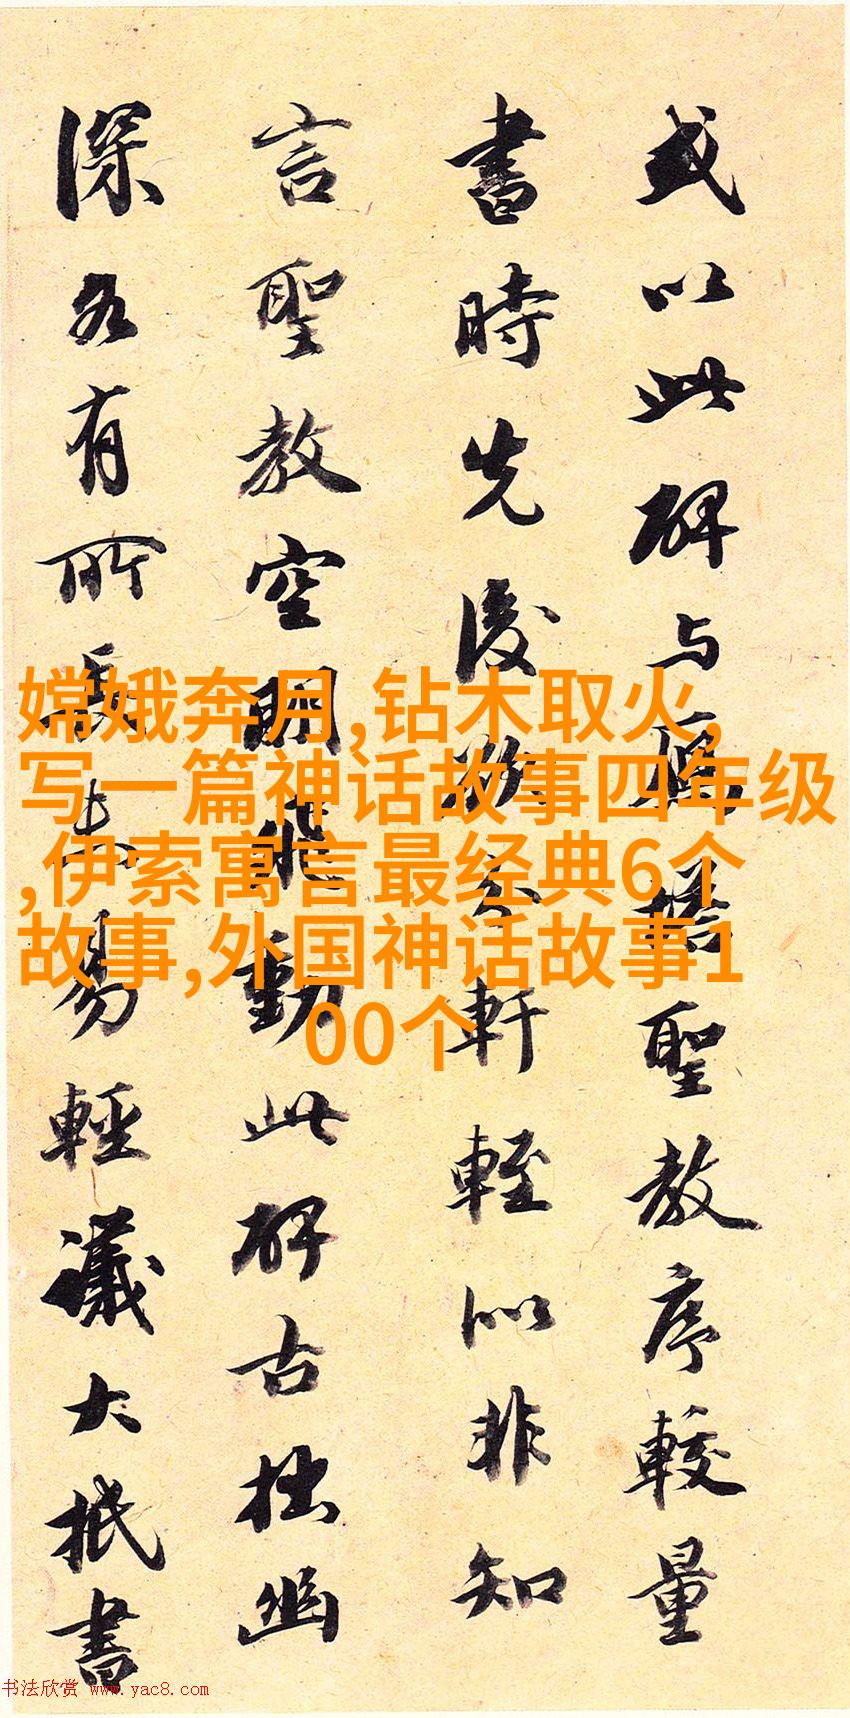 或以此碑与雁塔聖教序較量
書時先後分軒輊似非知
言聖教空明飛動此碑古拙幽
深各有所長未易輕議大抵書
嫦娥奔月,钻木取火,
写一篇神话故事四年级
,伊索寓言最经典6个
故事,外国神话故事1
00个
书法欣赏 www.yac8.com